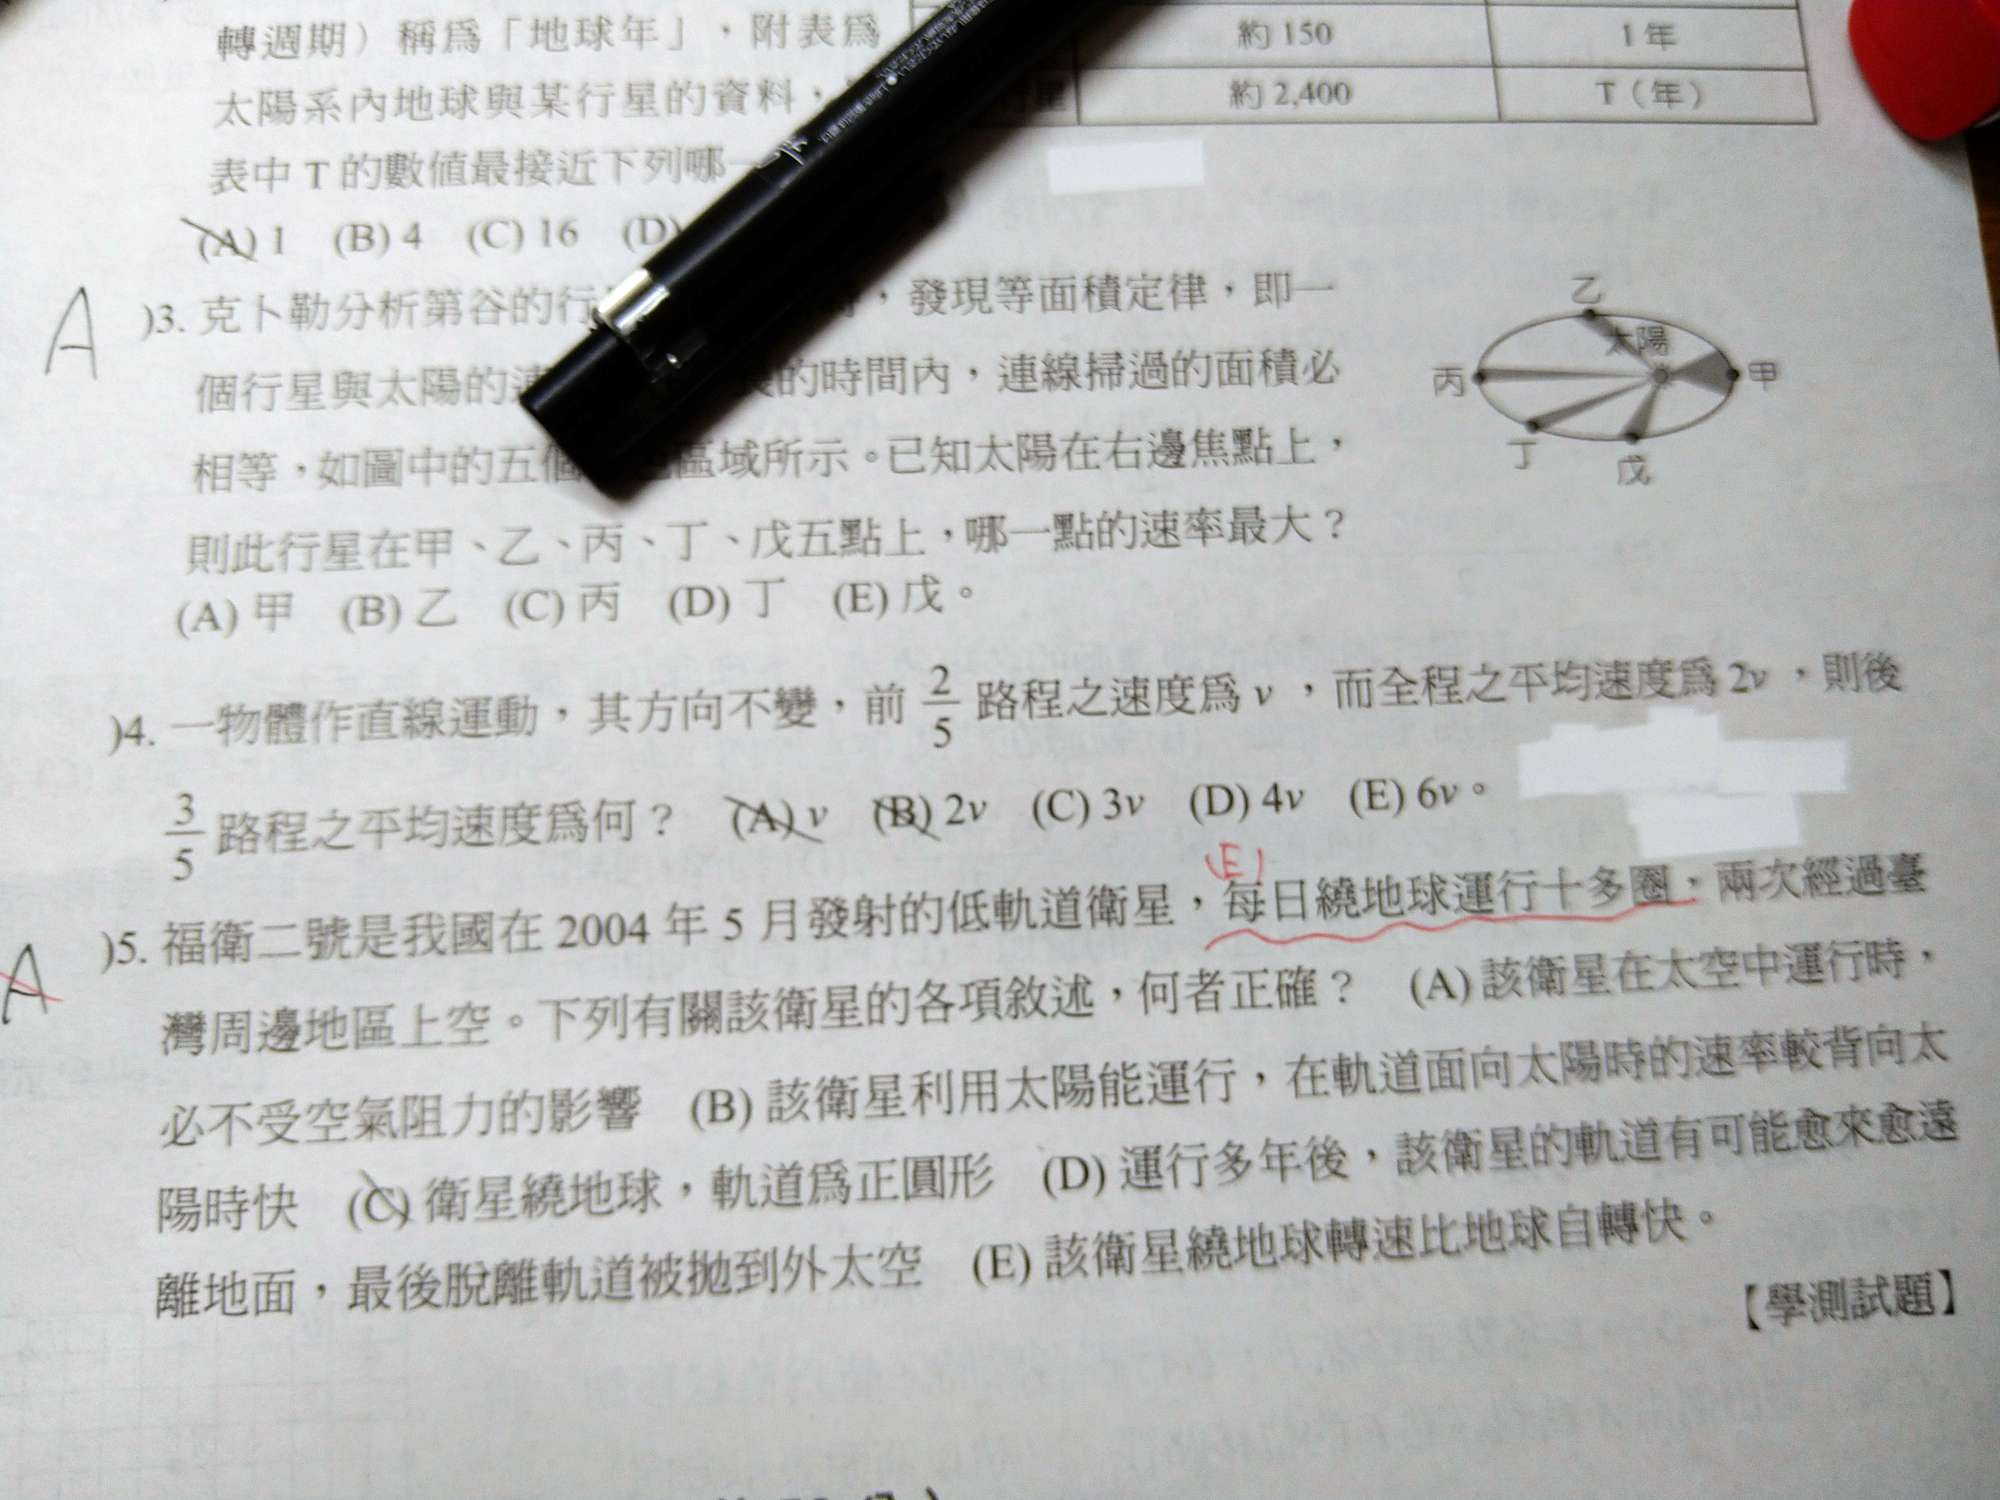 轉週期）稱為「地球年」，附表為
約 150
1 年
太陽系內地球與某行星的資料，
約 2,400
T（年）
表中 T 的數值最接近下列哪一
(A) 1 (B) 4 (C) 16 (D)
A
)3. 克卜勒分析第谷的行 ，發現等面積定律，即一
個行星與太陽的連 的時間內，連線掃過的面積必
相等，如圖中的五個 區域所示。已知太陽在右邊焦點上，
則此行星在甲、乙、丙、丁、戊五點上，哪一點的速率最大？
(A) 甲 (B) 乙 (C) 丙 (D) 丁 (E) 戊。
乙
太陽
丙
甲
丁
戊
)4. 一物體作直線運動，其方向不變，前 2/5 路程之速度為 v ，而全程之平均速度為 2v ，則後
3/5 路程之平均速度為何？ (A) v (B) 2v (C) 3v (D) 4v (E) 6v。
(E)
A
)5. 福衛二號是我國在 2004 年 5 月發射的低軌道衛星，每日繞地球運行十多圈，兩次經過臺
灣周邊地區上空。下列有關該衛星的各項敘述，何者正確？ (A) 該衛星在太空中運行時，
必不受空氣阻力的影響 (B) 該衛星利用太陽能運行，在軌道面向太陽時的速率較背向太
陽時快 (C) 衛星繞地球，軌道為正圓形 (D) 運行多年後，該衛星的軌道有可能愈來愈遠
離地面，最後脫離軌道被拋到外太空 (E) 該衛星繞地球轉速比地球自轉快。
【學測試題】